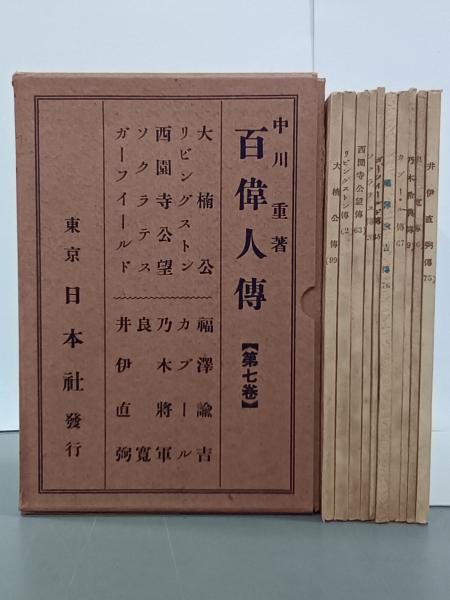 中川重著
百偉人傳【第七卷】
大楠公
リビングストン
西園寺公望
ソクラテス
ガーフイールド
福澤諭吉
カブール
乃木將軍
良寬
井伊直弼
東京 日本社 發行
井伊直弼傳(75)
乃木希典傳
カブール傳(67
福澤諭吉傳(76
西園寺公望傳(63)
リビングストン傳(62
大楠公傳(99)